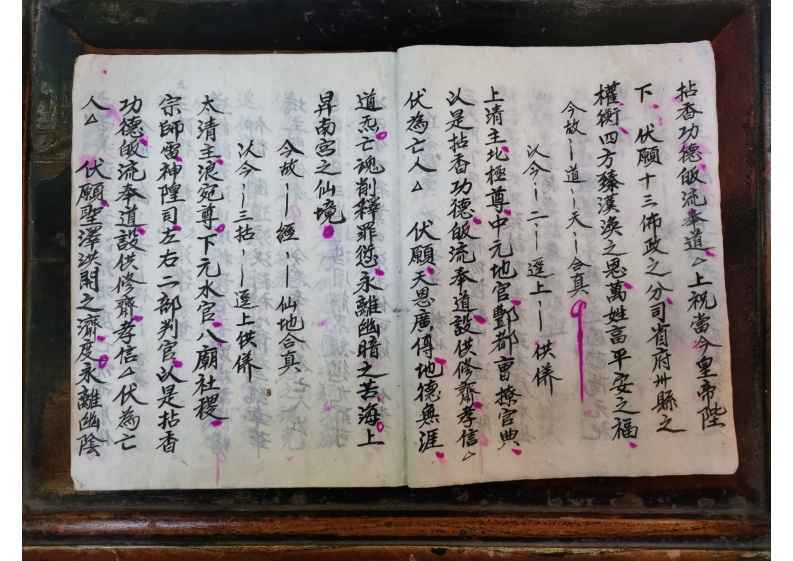 拈香功德皈流奉道△上祝當今皇帝陛
下、伏願十三佈政之分司省府州縣之
權衡四方臻漢渙之恩萬姓高平安之福
今故〡道〡天〡合真
以今〡二〡逕上〡供併
上清主北極尊中元地官酆都曹撩官典
以是拈香功德皈流奉道設供修齋孝信△
伏為亡人△　伏願天恩廣傳地德無涯
道炁亡魂削釋罪愆永離幽暗之苦海上
昇南宮之仙境
今故〡經〡仙地合真
以今〡三拈〡逕上供併
太清主浪宛尊下元水官八廟社稷
宗師雷神隍司左右二部判官以是拈香
功德皈流奉道設供修齋孝信△伏為亡
人△　伏願聖澤洪開之濟度永離幽陰